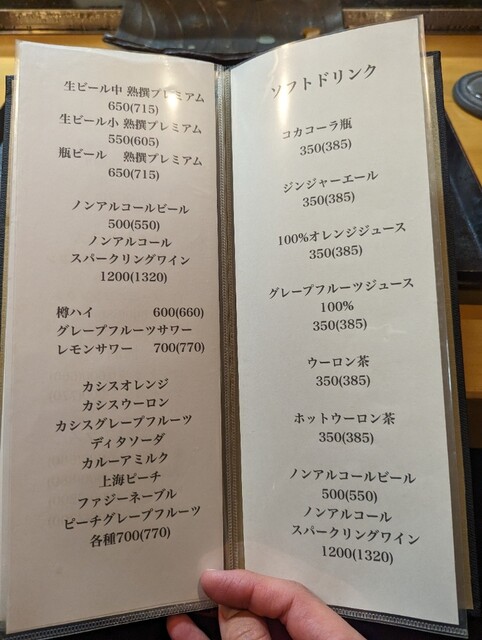 生ビール中 熟撰プレミアム
650(715)
生ビール小 熟撰プレミアム
550(605)
瓶ビール　熟撰プレミアム
650(715)
ノンアルコールビール
500(550)
ノンアルコール
スパークリングワイン
1200(1320)
樽ハイ　600(660)
グレープフルーツサワー
レモンサワー　700(770)
カシスオレンジ
カシスウーロン
カシスグレープフルーツ
ディタソーダ
カルーアミルク
上海ピーチ
ファジーネーブル
ピーチグレープフルーツ
各種700(770)
ソフトドリンク
コカコーラ瓶
350(385)
ジンジャーエール
350(385)
100%オレンジジュース
350(385)
グレープフルーツジュース
100%
350(385)
ウーロン茶
350(385)
ホットウーロン茶
350(385)
ノンアルコールビール
500(550)
ノンアルコール
スパークリングワイン
1200(1320)